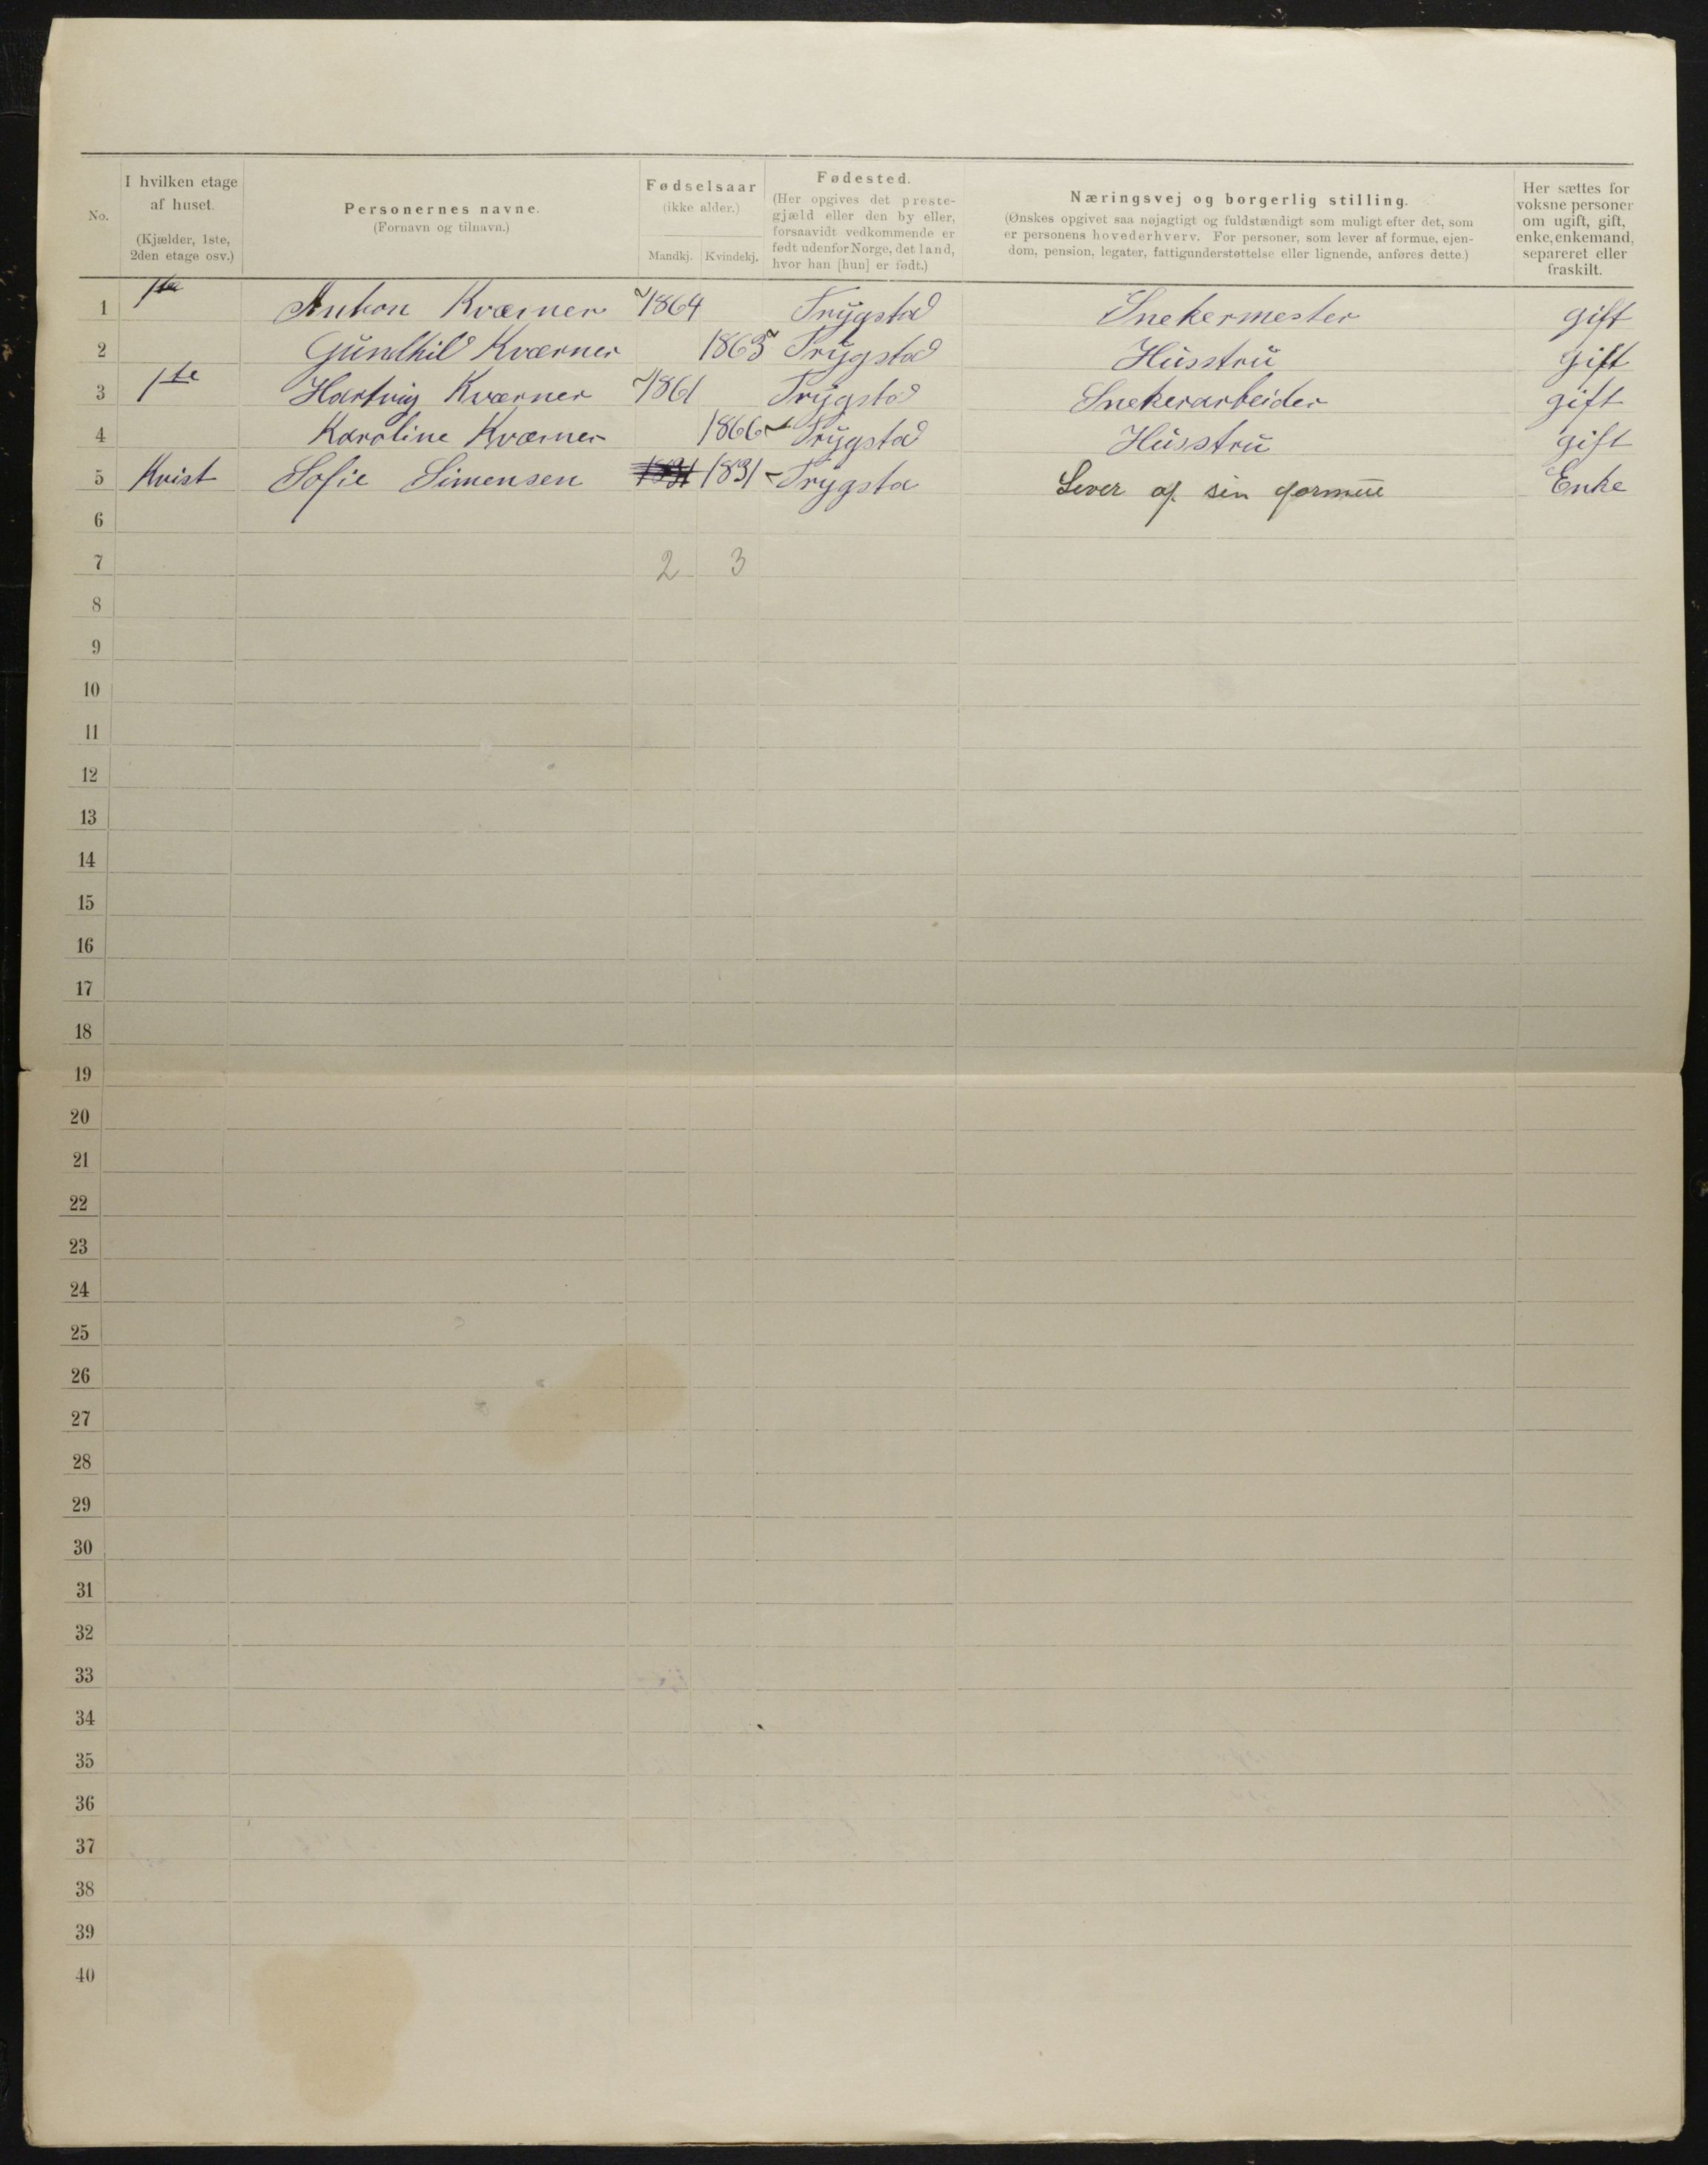 No.
I hvilken etage af huset.
(Kjælder, 1ste, 2den etage osv.)
Personernes navne.
(Fornavn og tilnavn.)
Fødselsaar
(ikke alder.)
Mandkj. Kvindekj.
Fødested.
(Her opgives det prestegjæld eller den by eller, forsaavidt vedkommende er født udenfor Norge, det land, hvor han [hun] er født.)
Næringsvej og borgerlig stilling.
(Ønskes opgivet saa nøjagtigt og fuldstændigt som muligt efter det, som er personens hovederhverv. For personer, som lever af formue, ejendom, pension, legater, fattigunderstøttelse eller lignende, anføres dette.)
Her sættes for voksne personer om ugift, gift, enke, enkemand, separeret eller fraskilt.
1 1ste Anton Kværner 1864 Trygstad Snekermester gift
2 Gundhild Kværner 1863 Trygstad Husstru gift
3 1ste Hartvig Kværner 1861 Trygstad Snekerarbeider gift
4 Karoline Kværner 1866 Trygstad Husstru gift
5 Kvist Sofie Simensen 1831 1831 Trygsta Lever af sin formue Enke
6
7 2 3
8
9
10
11
12
13
14
15
16
17
18
19
20
21
22
23
24
25
26
27
28
29
30
31
32
33
34
35
36
37
38
39
40